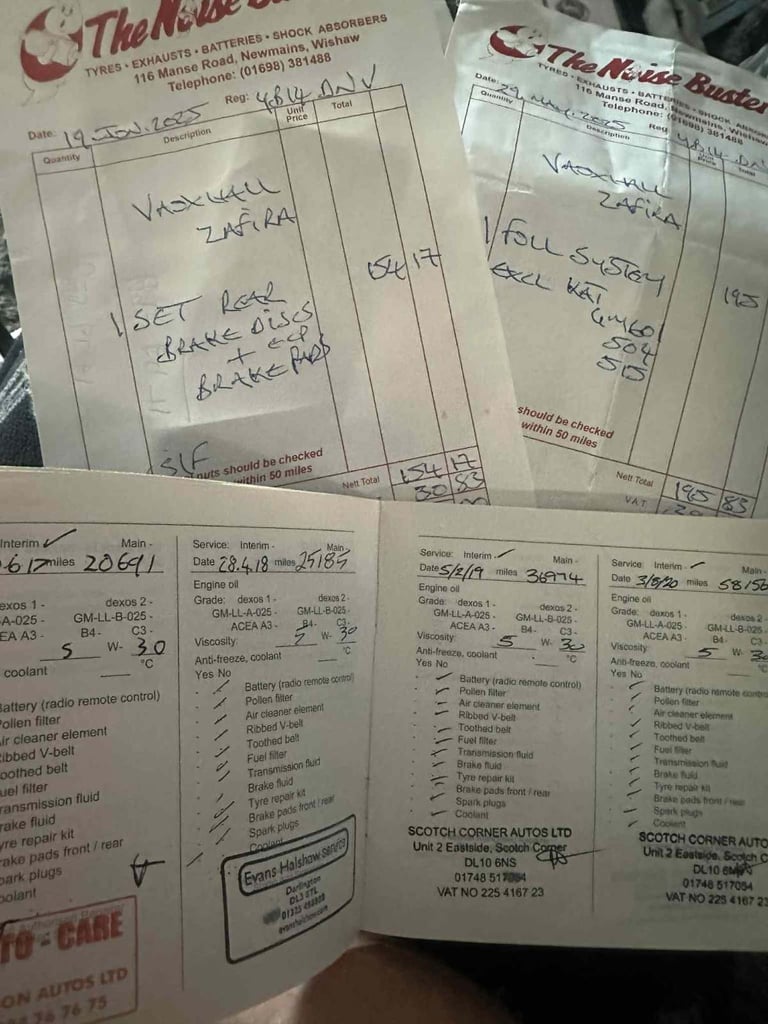 The Noise Buster
TYRES • EXHAUSTS • BATTERIES • SHOCK ABSORBERS
116 Manse Road, Newmains, Wishaw
Telephone: (01698) 381488
Date: 19 JUN. 2025 Reg: YB14 DNV
Quantity Description Unit Price Total
VAUXHALL
ZAFIRA
154 17
1 SET REAR
BRAKE DISCS
+ ECP
BRAKE PADS
S/F
nuts should be checked
within 50 miles
Nett Total 154 17
30 83
The Noise Buster
TYRES • EXHAUSTS •
116 Manse Road, Newmains, Wishaw
Telephone: (01698) 381488
Date: 29. MAY. 2025 Reg YB14 DN
Quantity Description Total
VAUXHALL
ZAFIRA
1 FULL SYSTEM
195
EXCL KAT
GM601
504
515
should be checked
within 50 miles
Nett Total 195 83
VAT
Interim ✓ Main -
miles 20691
dexos 1 - dexos 2 -
-A-025 - GM-LL-B-025 -
CEA A3 - B4- C3 -
5 W- 30
coolant °C
Battery (radio remote control)
Pollen filter
Air cleaner element
Ribbed V-belt
Toothed belt
Fuel filter
Transmission fluid
Brake fluid
Tyre repair kit
Brake pads front / rear
Spark plugs
Coolant
TO-CARE
ON AUTOS LTD
76 76 75
Service: Interim - Main -
Date 28.4.18 miles 25185
Engine oil
Grade: dexos 1 - dexos 2 -
GM-LL-A-025 - GM-LL-B-025 -
ACEA A3 - B4- C3 -
Viscosity: 5 W- 30
Anti-freeze, coolant °C
Yes No
Battery (radio remote control)
Pollen filter
Air cleaner element
Ribbed V-belt
Toothed belt
Fuel filter
Transmission fluid
Brake fluid
Tyre repair kit
Brake pads front / rear
Spark plugs
Coolant
Evans Halshaw service
Darlington
DL3 0TL
evanshalshaw.com
Service: Interim ✓ Main -
Date 5/2/19 miles 36974
Engine oil
Grade: dexos 1 - dexos 2 -
GM-LL-A-025 - GM-LL-B-025 -
ACEA A3 - B4- C3 -
Viscosity: 5 W- 30
Anti-freeze, coolant °C
Yes No
Battery (radio remote control)
Pollen filter
Air cleaner element
Ribbed V-belt
Toothed belt
Fuel filter
Transmission fluid
Brake fluid
Tyre repair kit
Brake pads front / rear
Spark plugs
Coolant
SCOTCH CORNER AUTOS LTD
Unit 2 Eastside, Scotch Corner
DL10 6NS
01748 517054
VAT NO 225 4167 23
Service: Interim - ✓ Main -
Date 3/8/20 miles 58156
Engine oil
Grade: dexos 1 - dexos 2 -
GM-LL-A-025 - GM-LL-B-025 -
ACEA A3 - B4- C3 -
Viscosity: 5 W- 30
Anti-freeze, coolant °C
Yes No
Battery (radio remote control)
Pollen filter
Air cleaner element
Ribbed V-belt
Toothed belt
Fuel filter
Transmission fluid
Brake fluid
Tyre repair kit
Brake pads front / rear
Spark plugs
Coolant
SCOTCH CORNER AUTO
Unit 2 Eastside, Scotch C
DL10 6
01748 517054
VAT NO 225 4167 23